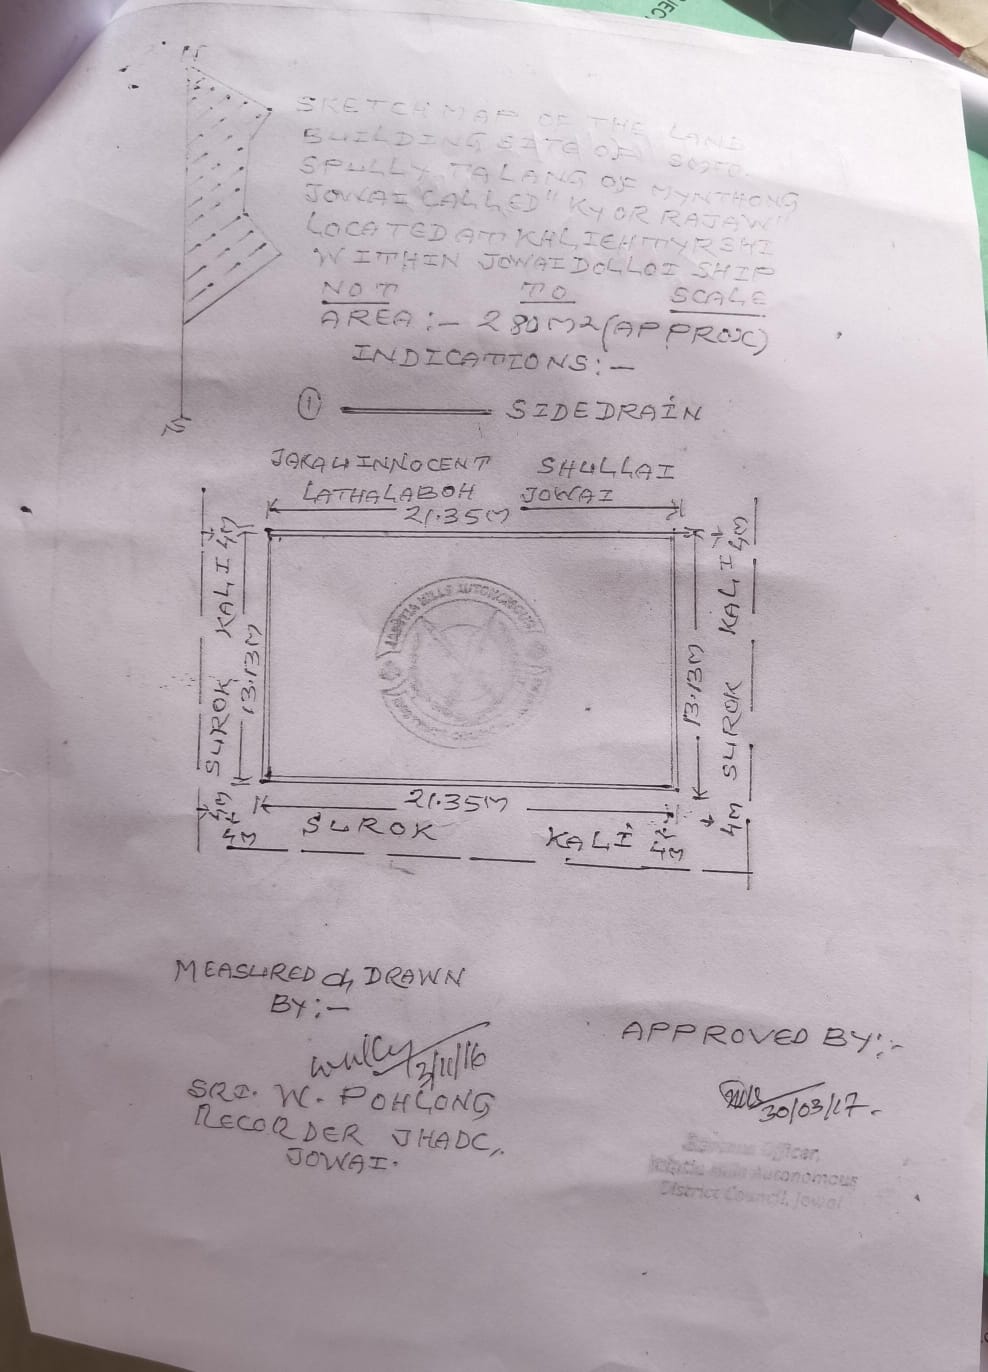 N
SKETCH MAP OF THE LAND
BUILDING SITE OF
SPULLY TALANG OF MYNTHONG
JOWAI CALLED "KYOR RAJAW"
LOCATED AT KHLIEHTYRSHI
WITHIN JOWAI DOLLOI SHIP
NOT TO SCALE
AREA :- 280M2 (APPROX)
INDICATIONS :-
① SIDE DRAIN
S
INNOCENT SHULLAI
LATHALABOH JOWAI
21.35M
4M
4M
SUROK KALI
13.13M
JAINTIA HILLS AUTONOMOUS
13.13M
SUROK KALI
4M
4M
21.35M
4M
4M
SUROK KALI
MEASURED & DRAWN
BY :-
2/11/16
SRI. W. POHLONG
RECORDER JHADC,
JOWAI.
APPROVED BY :-
30/03/17.
Officer,
Jaintia Hills Autonomous
District Council, Jowai